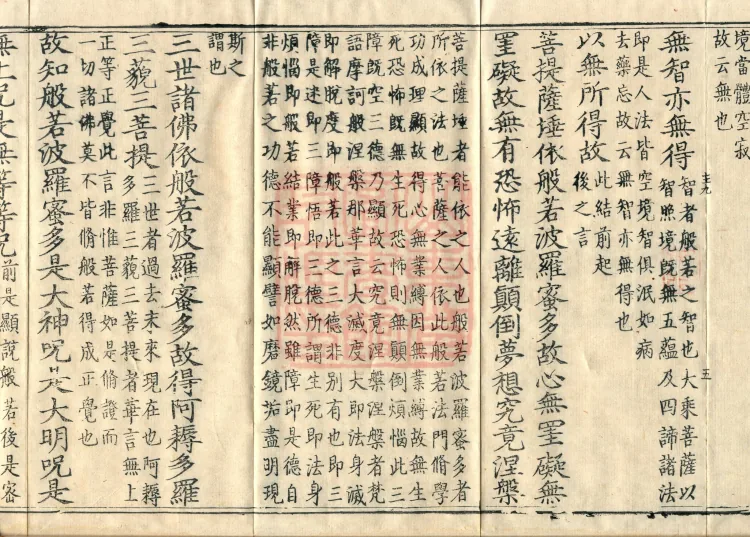 境當體空寂
故云無也
無智亦無得
智者般若之智也大乘菩薩以
智照境既無五蘊及四諦諸法
即是人法皆空境智俱泯如病
去藥忘故云無智亦無得也
以無所得故
此結前起
後之言
五
菩提薩埵依般若波羅蜜多故心無罣礙無
罣礙故無有恐怖遠離顛倒夢想究竟涅槃
菩提薩埵者能依之人也般若波羅蜜多者
所依之法也菩薩之人依此般若法門脩學
功成理顯故得心無業縛因無業縛故無生
死恐怖既無生死恐怖則無顛倒煩惱此三
障既空三德乃顯故云究竟涅槃涅槃者梵
語摩訶般涅槃那華言大滅度大即法身滅
即解脫度即般若此之三德非別有也即三
障是迷即三障悟即三德所謂生死即法身
煩惱即般若結業即解脫然雖障即是德自
非般若之功德不能顯譬如磨鏡垢盡明現
斯之
謂也
三世諸佛依般若波羅蜜多故得阿耨多羅
三藐三菩提
三世者過去未來現在也阿耨
多羅三藐三菩提者華言無上
正等正覺此言非惟菩薩如是脩證而
一切諸佛莫不皆脩般若得成正覺也
故知般若波羅蜜多是大神呪是大明呪是
無上呪是無等等呪
前是顯說般若後是密